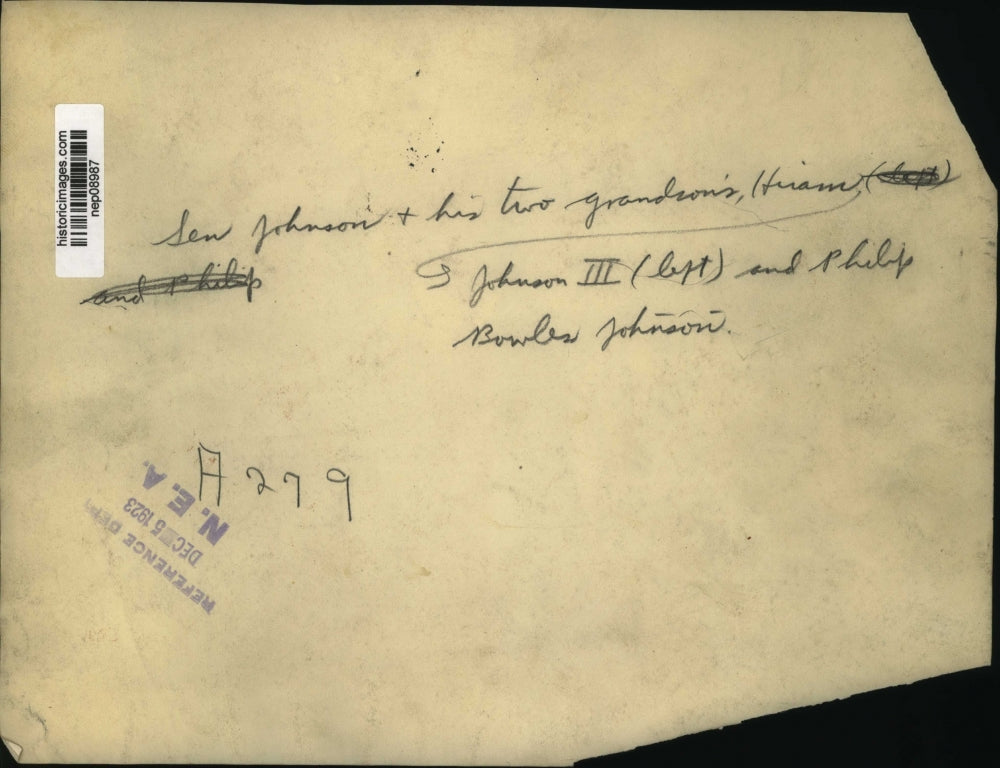 historicimages.com
nep08987
Sen Johnson + his two grandson's, Hiram, (left)
and Philip
Johnson III (left) and Philip
Bowles Johnson.
A 279
REFERENCE DEPT
DEC 5 1923
N. E. A.